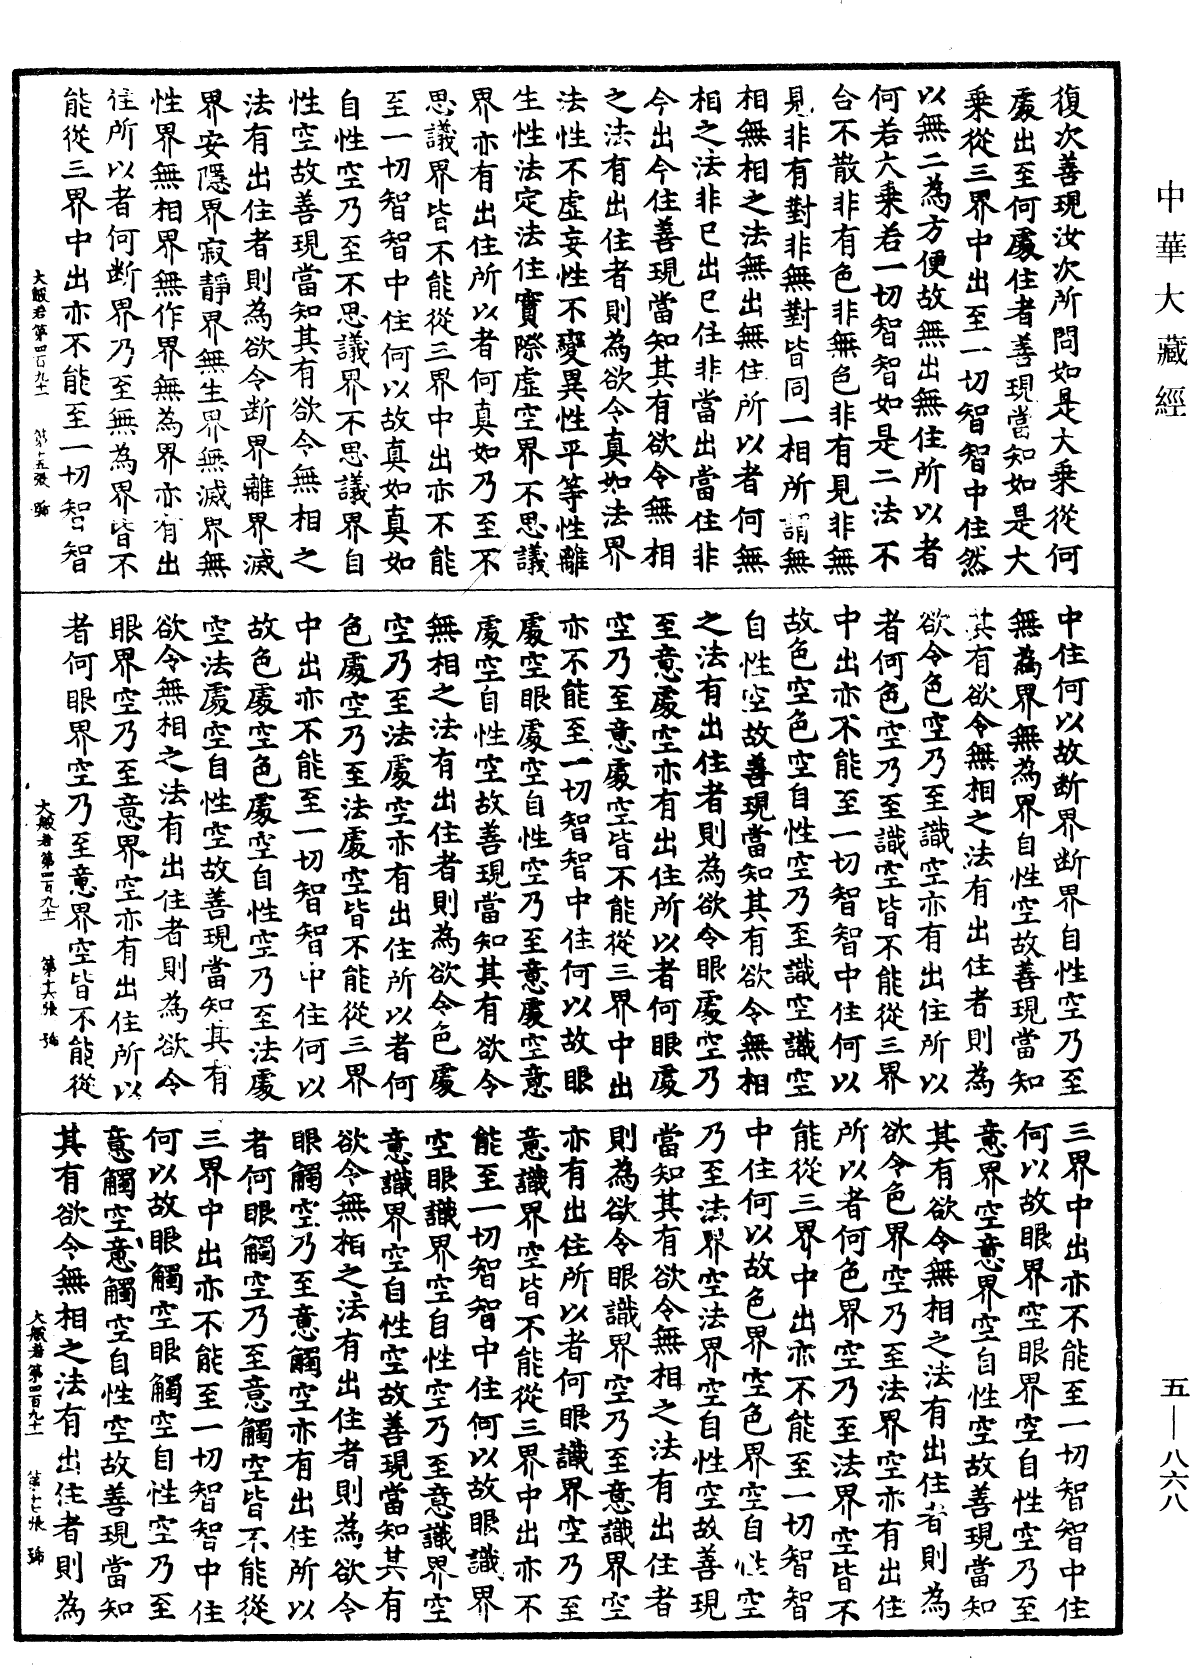 中華大藏經
復次善現汝次所問如是大乘從何
處出至何處住者善現當知如是大
乘從三界中出至一切智智中住然
以無二為方便故無出無住所以者
何若大乘若一切智智如是二法不
合不散非有色非無色非有見非無
見非有對非無對皆同一相所謂無
相無相之法無出無住所以者何無
相之法非已出已住非當出當住非
今出今住善現當知其有欲令無相
之法有出住者則為欲令真如法界
法性不虛妄性不變異性平等性離
生性法定法住實際虛空界不思議
界亦有出住所以者何真如乃至不
思議界皆不能從三界中出亦不能
至一切智智中住何以故真如真如
自性空乃至不思議界不思議界自
性空故善現當知其有欲令無相之
法有出住者則為欲令斷界離界滅
界安隱界寂靜界無生界無滅界無
性界無相界無作界無為界亦有出
住所以者何斷界乃至無為界皆不
能從三界中出亦不能至一切智智
大般若第四百九十一 第十五張 號
中住何以故斷界斷界自性空乃至
無為界無為界自性空故善現當知
其有欲令無相之法有出住者則為
欲令色空乃至識空亦有出住所以
者何色空乃至識空皆不能從三界
中出亦不能至一切智智中住何以
故色空色空自性空乃至識空識空
自性空故善現當知其有欲令無相
之法有出住者則為欲令眼處空乃
至意處空亦有出住所以者何眼處
空乃至意處空皆不能從三界中出
亦不能至一切智智中住何以故眼
處空眼處空自性空乃至意處空意
處空自性空故善現當知其有欲令
無相之法有出住者則為欲令色處
空乃至法處空亦有出住所以者何
色處空乃至法處空皆不能從三界
中出亦不能至一切智智中住何以
故色處空色處空自性空乃至法處
空法處空自性空故善現當知其有
欲令無相之法有出住者則為欲令
眼界空乃至意界空亦有出住所以
者何眼界空乃至意界空皆不能從
大般若第四百九十一 第十六張 號
三界中出亦不能至一切智智中住
何以故眼界空眼界空自性空乃至
意界空意界空自性空故善現當知
其有欲令無相之法有出住者則為
欲令色界空乃至法界空亦有出住
所以者何色界空乃至法界空皆不
能從三界中出亦不能至一切智智
中住何以故色界空色界空自性空
乃至法界空法界空自性空故善現
當知其有欲令無相之法有出住者
則為欲令眼識界空乃至意識界空
亦有出住所以者何眼識界空乃至
意識界空皆不能從三界中出亦不
能至一切智智中住何以故眼識界
空眼識界空自性空乃至意識界空
意識界空自性空故善現當知其有
欲令無相之法有出住者則為欲令
眼觸空乃至意觸空亦有出住所以
者何眼觸空乃至意觸空皆不能從
三界中出亦不能至一切智智中住
何以故眼觸空眼觸空自性空乃至
意觸空意觸空自性空故善現當知
其有欲令無相之法有出住者則為
大般若第四百九十一 第十七張 號
五—八六八